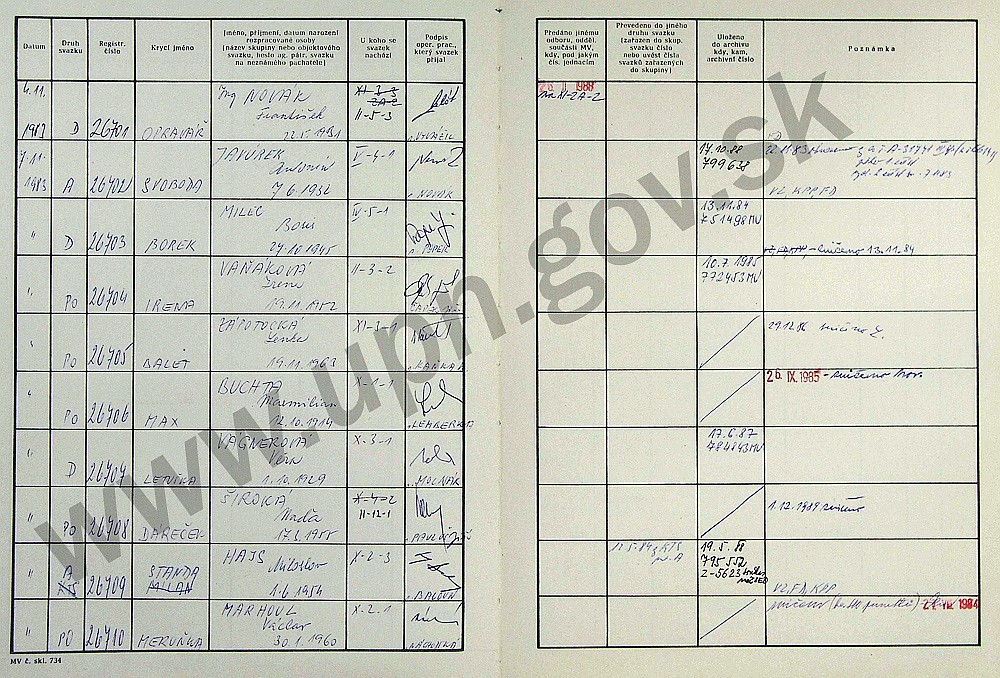 Datum
Druh svazku
Registr. číslo
Krycí jméno
Jméno, příjmení, datum narození rozpracované osoby (název skupiny nebo objektového svazku, heslo ag. pátr. svazku na neznámého pachatele)
U koho se svazek nachází
Podpis oper. prac., který svazek přijal
Předáno jinému odboru, odděl. součásti MV, kdy, pod jakým čís. jednacím
Převedeno do jiného druhu svazku (zařazen do skup. svazku číslo nebo uvést čísla svazků zařazených do skupiny)
Uloženo do archivu kdy, kam, archivní číslo
Poznámka
4.11. 1983 D 26701 OPRAVÁŘ
Ing NOVÁK
František
22.5.1931
XI-3-3
2A-2
II-5-3
1988
na XI-2A-2
7.11. 1983 A 26702 SVOBODA
JAVŮREK
Antonín
7.6.1932
V-4-1
NOVÁK
17.10.88
799638
22.11.83
VZ, KPP, FD
" D 26703 BOREK
MILEC
Boris
27.10.1945
IV-5-1
13.11.84
751498 MV
zničeno 13.11.84
" PO 26704 IRENA
VAŇÁKOVÁ
Irena
19.11.1952
II-3-2
10.7.1985
772453 MV
" PO 26705 BALET
ZÁPOTOCKÁ
Lenka
19.11.1963
XI-3-1
29.12.86 zničeno
" PO 26706 MAX
BUCHTA
Maxmilian
12.10.1914
X-1-1
LEMBERKA
26. IX. 1985 - zničeno
" D 26707 LETNÍKA
VÁGNEROVÁ
Věra
1.10.1929
X-3-1
MOLNÁR
17.6.87
784843 MV
" PO 26708 DÁREČEK
ŠIROKÁ
Naďa
17.3.1955
X-4-2
II-12-1
1.12.1989 zničeno
" A 26709 STANDA
MILAN
HAJS Miloslav
1.6.1954
X-2-3
BALOUN
19.5.88
795552
Z-5623
VZ, FD, KPP
" PO 26710 MERUŇKA
MARHOUL
Václav
30.1.1960
X-2-1
NÁCHODSKÁ
zničeno
1984
MV č. skl. 734
www.upn.gov.sk